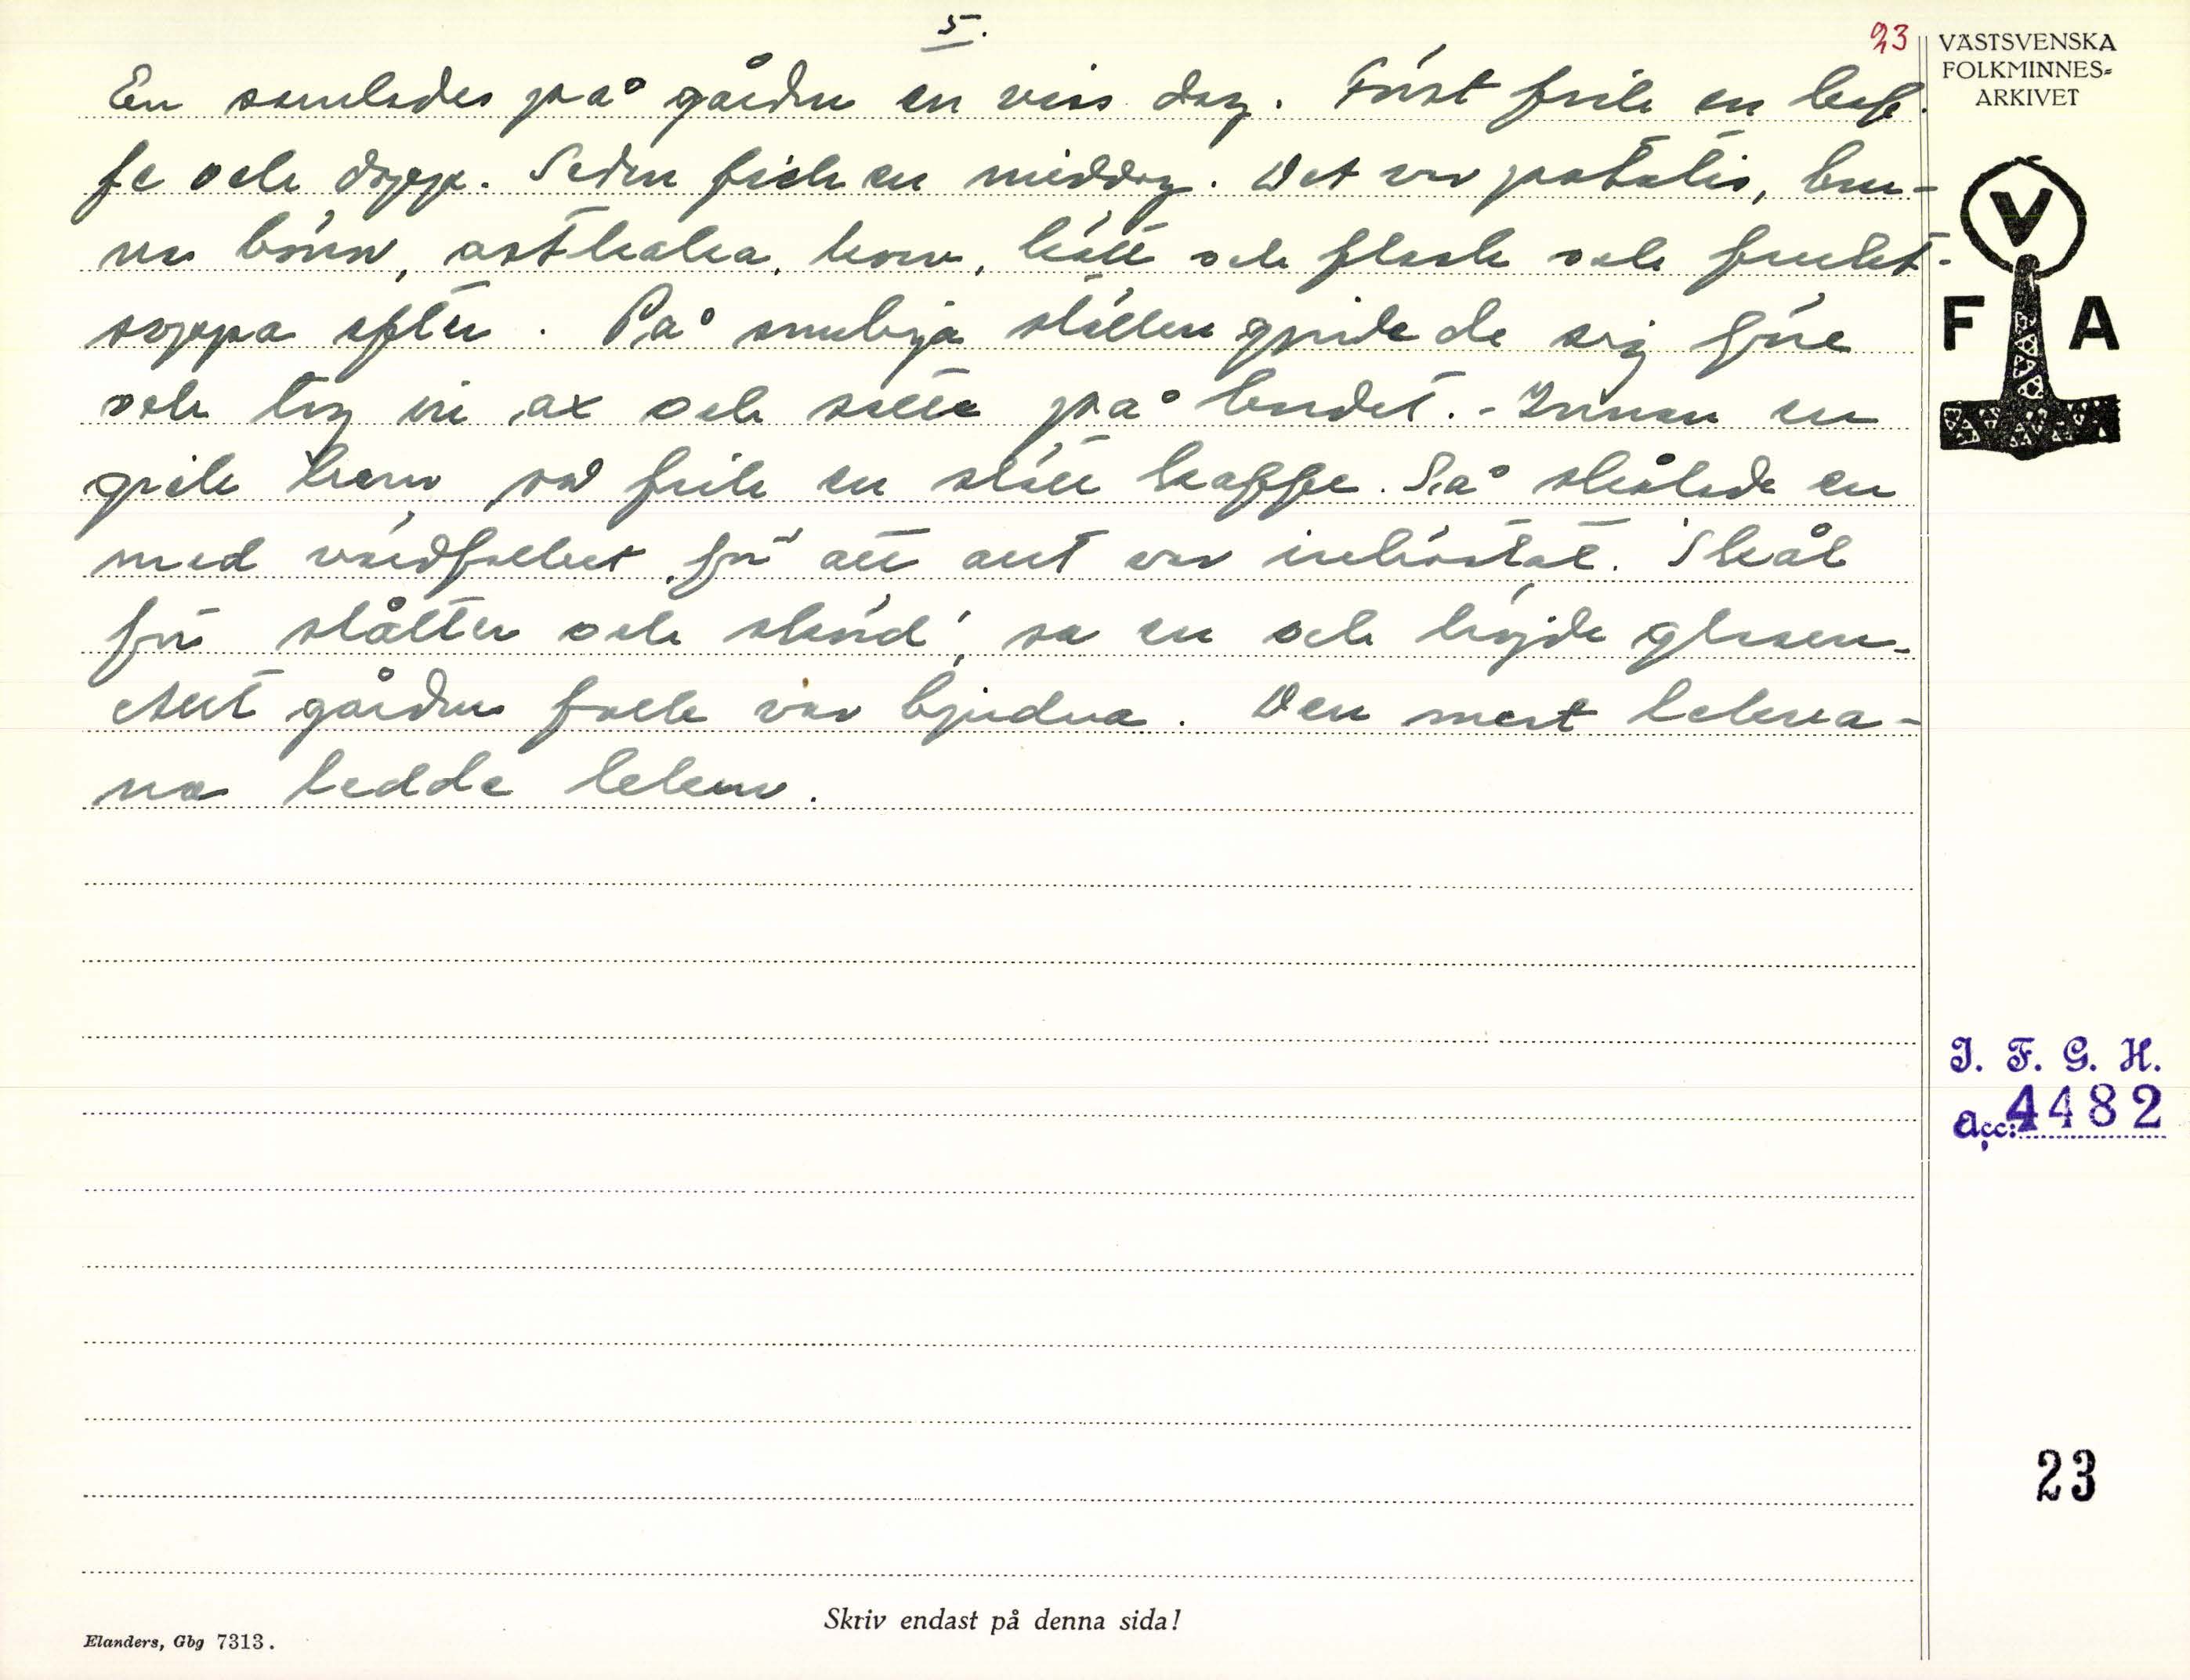 5.
23
VÄSTSVENSKA
FOLKMINNES-
ARKIVET
En samlades på gården en viss dag. Först fick en kaf-
fe och dopp. Sedan fick en middag. Det var potatis, bru-
na bönor, ostkaka, korv, kött och fläsk och frukt-
soppa efter. På smubiga ställen gjorde de sig före
och tog in ax och satte på bordet. - Innan en
gick hem så fick en slätt kaffe. Så skålade en
med värdfolket för att aut var inböstat. 'Skål
för slåtter och skörd', sa en och höjde glasen.
Aut gårdens folk var bjudna. Den mest lekva-
na ledde leken.
V
F A
I. F. G. H.
Acc: 4482
23
Skriv endast på denna sida!
Elanders, Gbg 7313.